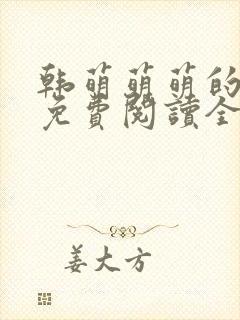 韩萌萌萌的
免費閱讀全
姜大方